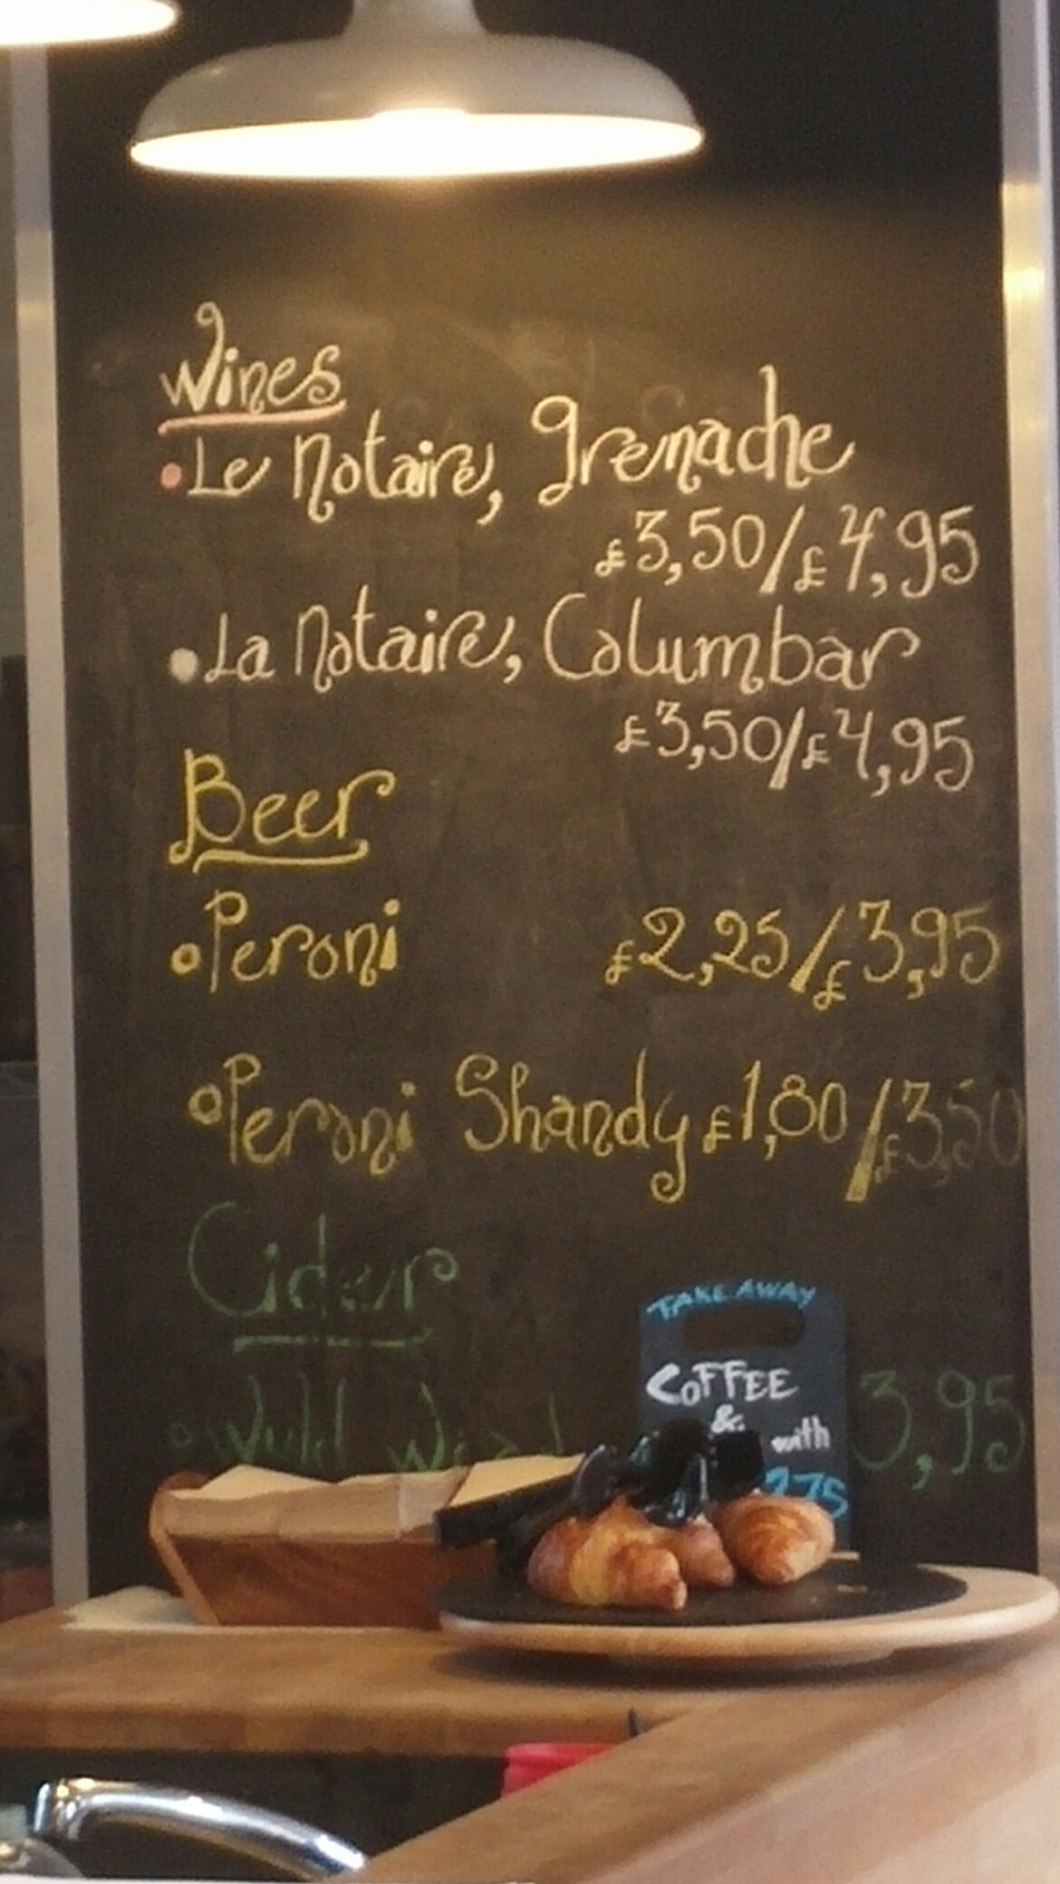 Wines
Le Notaire, Grenache
£3,50/£4,95
La Notaire, Columbar
£3,50/£4,95
Beer
Peroni £2,25/£3,95
Peroni Shandy £1,80/£3,50
Cider
3,95
TAKE AWAY
COFFEE
&
with